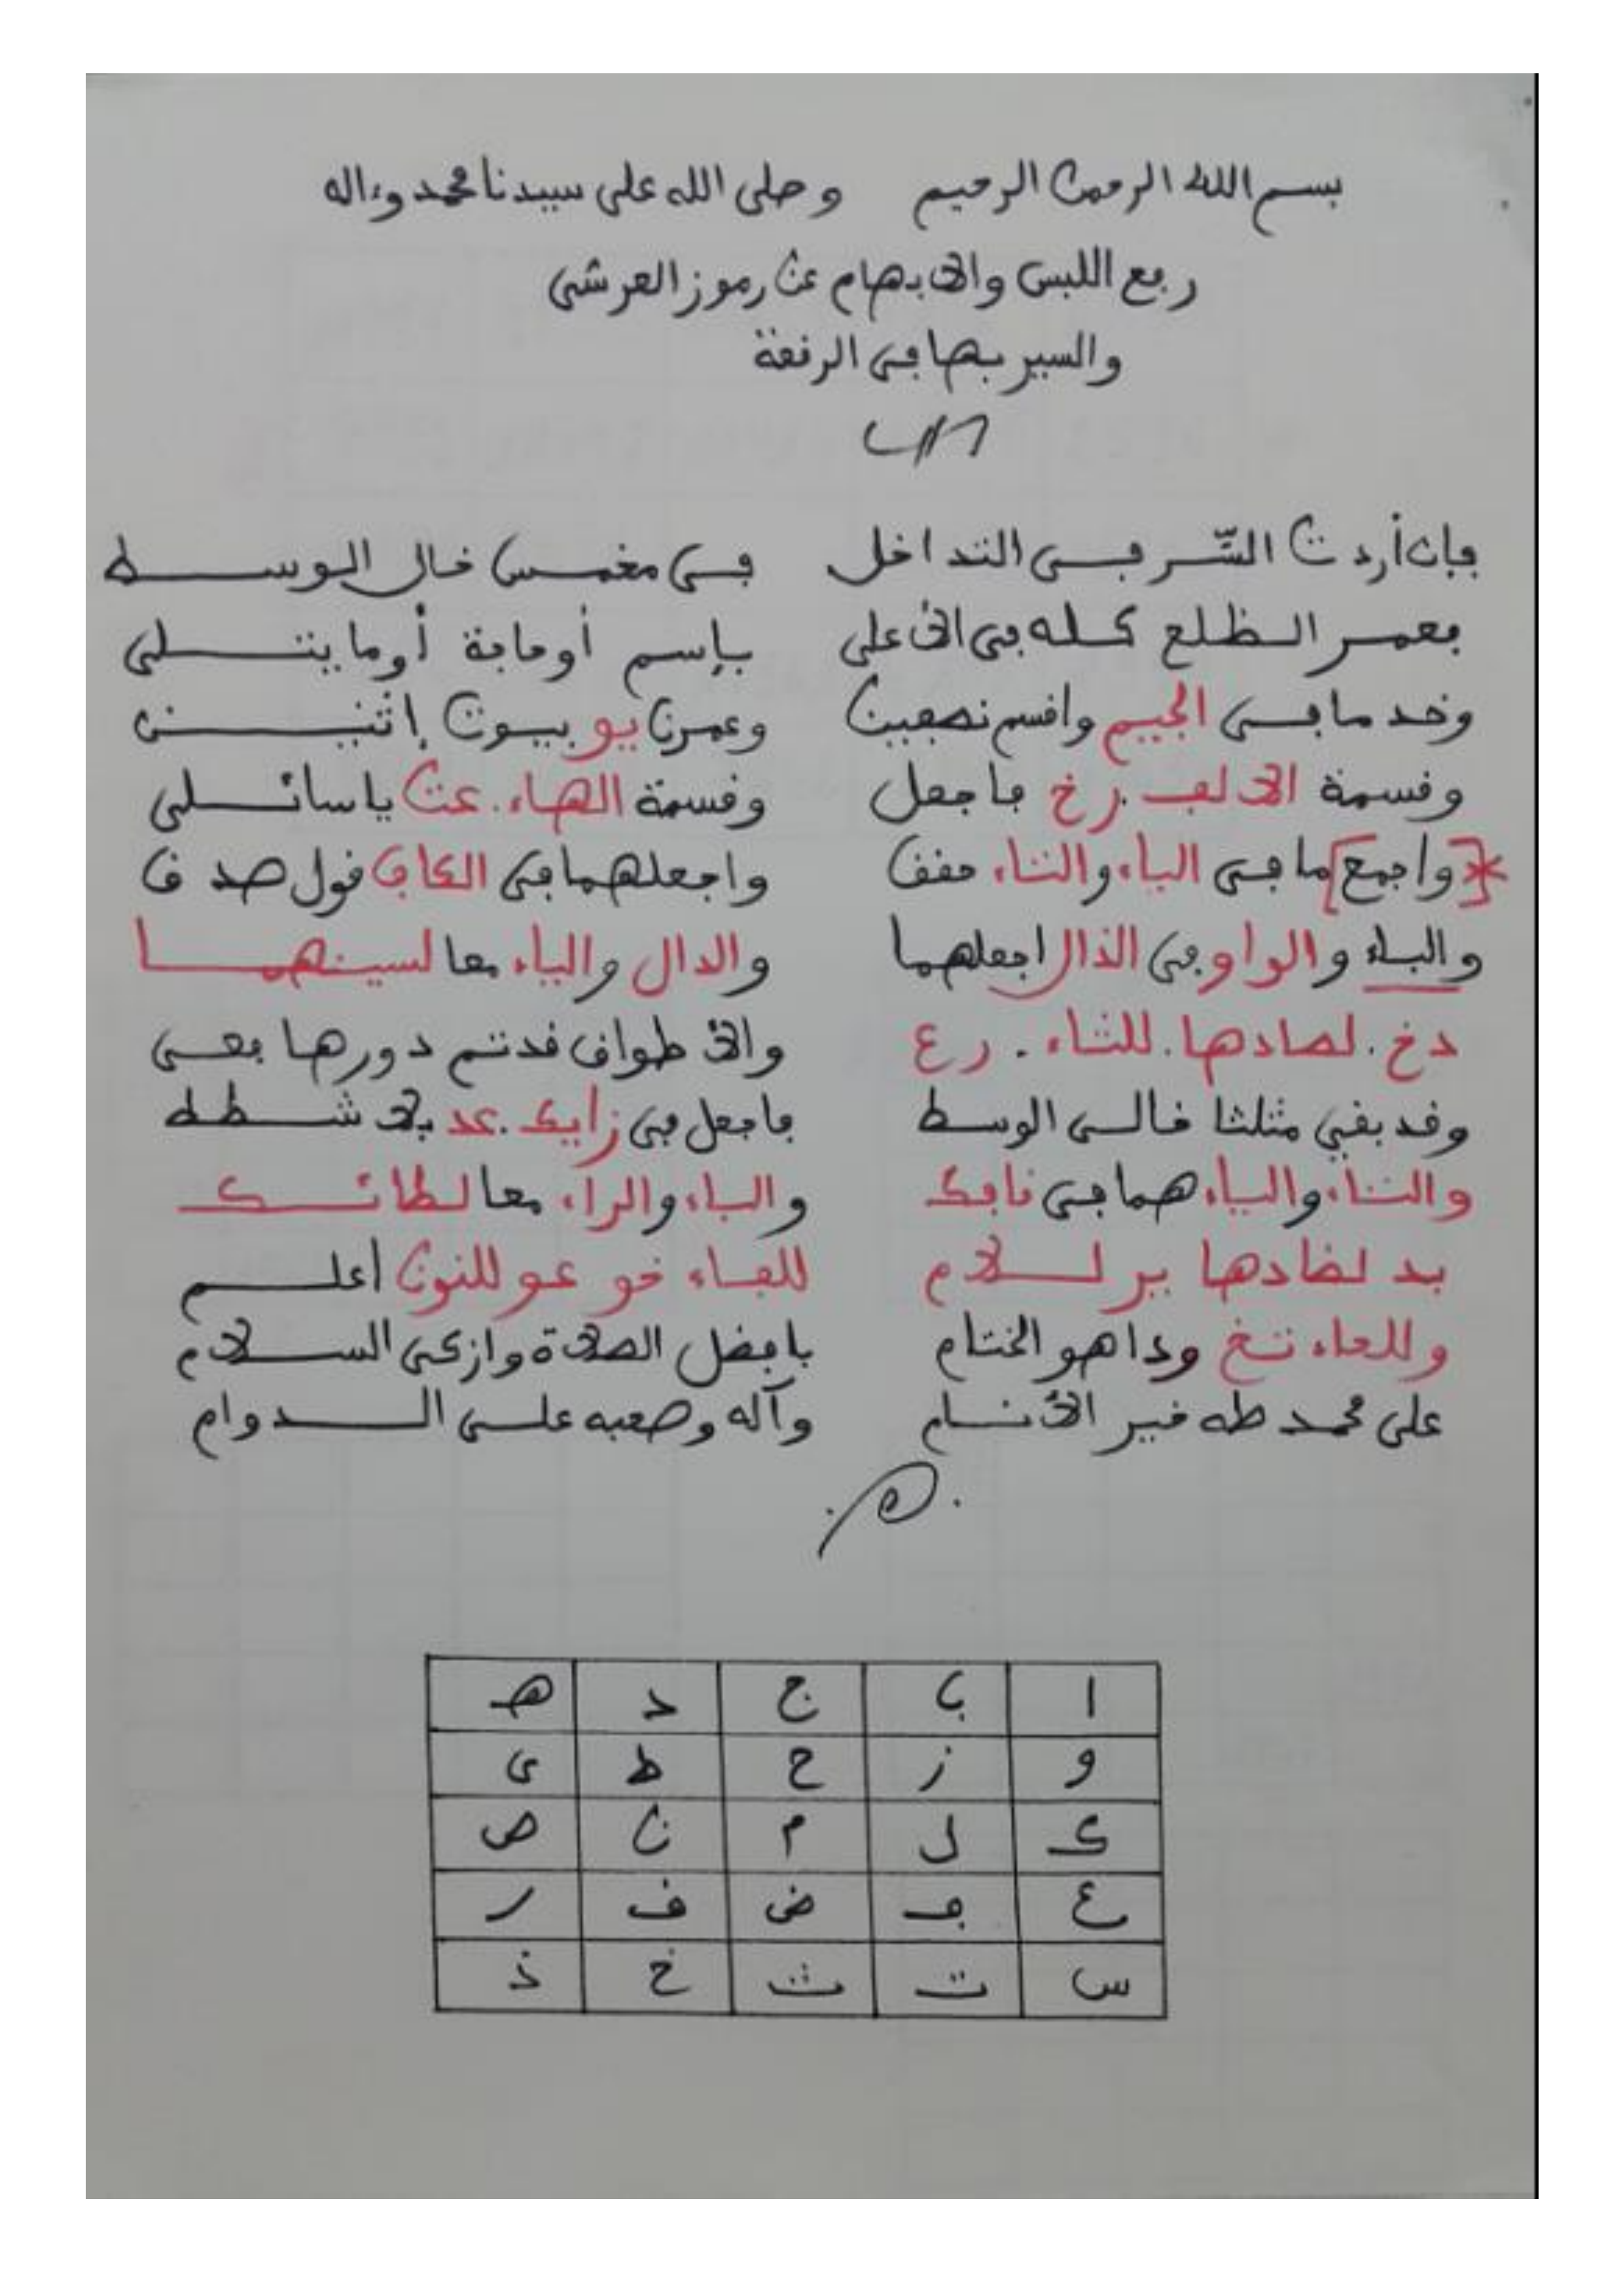 بسم الله الرحمن الرحيم وصلى الله على سيدنا محمد وءاله
رفع اللبس والابهام عن رموز العرشى
والسير بها فى الرقعة
فإن أردت السّر فى التداخل فى مخمس خال الوسط
فعمر الظلع كله فى الاعلى بإسم أوحاجة أوما يتلى
وخد ما فى الجيم واقسم نصفين وعمرن يو بيوت إثنين
وقسمة الالف رخ فاجعل وقسمة الهاء عت ياسائلى
[واجمع] ما فى الباء والتاء حقق واجعلهما فى الكاف قول صدق
والباء والواو فى الذال اجعلهما والدال والياء معا لسينهما
دخ لصادها للثاء رع والاطواق قدتم دورها فعى
وقد بقي مثلثا خالى الوسط فاجعل فى زايك عد بلا شطط
والتاء والياء هما فى قافك والباء والراء معا لطائك
بد لضادها ير لـلام للفاء خو عو للنون أعلم
وللحاء تخ وداهو الختام بافضل الصلاة وازكى السلام
على محمد طه خير الأنام وآله وصحبه على الدوام
ا ب ج د هـ
و ز ح ط ى
ك ل م ن ص
ع ف ض ق ر
س ت ث خ ذ